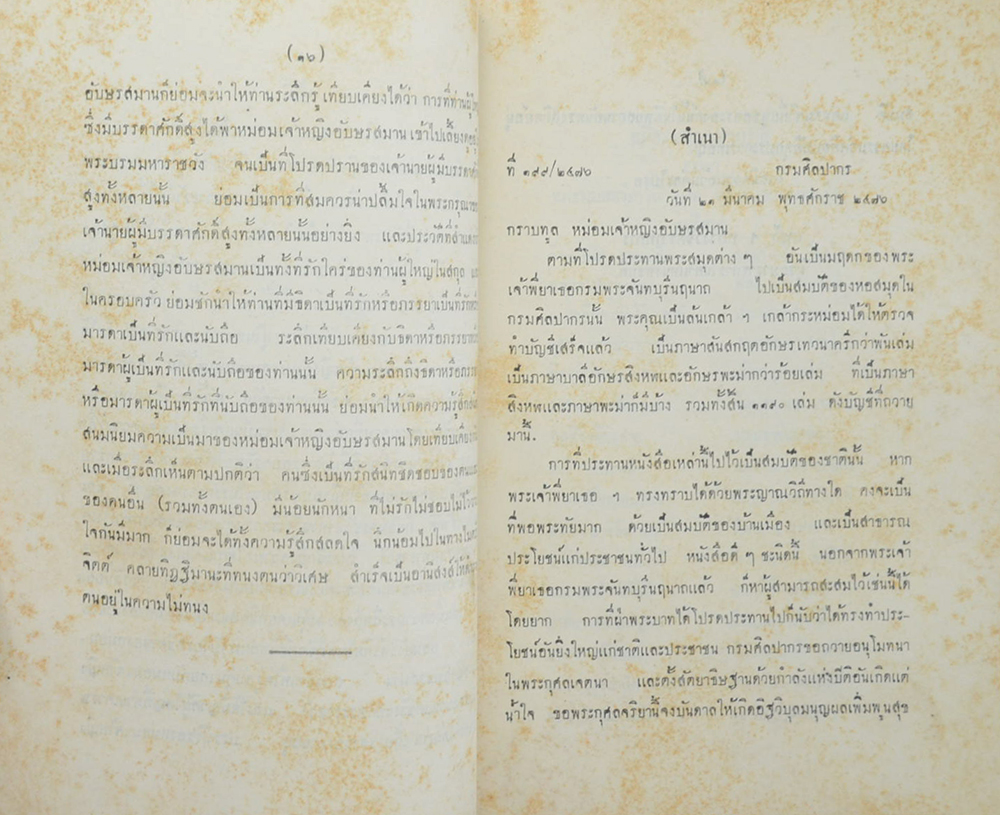 (๑๖)
อับษรสมานก็ย่อมจะนำให้ท่านระลึกรู้ เทียบเคียงได้ว่า การที่ท่านผู้
ซึ่งมีบรรดาศักดิ์สูงได้พาหม่อมเจ้าหญิงอับษรสมาน เข้าไปเลี้ยงดู
พระบรมมหาราชวัง จนเป็นที่โปรดปรานของเจ้านายผู้มีบรรดาศักดิ์
สูงทั้งหลายนั้น ย่อมเป็นการที่สมควรน่าปลื้มใจในพระกรุณา
เจ้านายผู้มีบรรดาศักดิ์สูงทั้งหลายนั้นอย่างยิ่ง และประวัติที่สำแดง
หม่อมเจ้าหญิงอับษรสมานเป็นทั้งที่รักใคร่ของท่านผู้ใหญ่ในสกุล
ในครอบครัว ย่อมชักนำให้ท่านที่มีธิดาเป็นที่รักหรือภรรยาเป็นที่รัก
มารดาเป็นที่รักและนับถือ ระลึกเทียบเคียงกับธิดาหรือภรรยา
มารดาผู้เป็นที่รักและนับถือของท่านนั้น ความระลึกถึงธิดาหรือ
หรือมารดาผู้เป็นที่รักที่นับถือของท่านนั้น ย่อมนำให้เกิดความรู้สึก
สนมนิยมความเป็นมาของหม่อมเจ้าหญิงอับษรสมานโดยเทียบเคียง
และเมื่อระลึกเห็นตามปกติว่า คนซึ่งเป็นที่รักสนิทชิดชอบของตน
ของคนอื่น (รวมทั้งตนเอง) มีน้อยนักหนา ที่ไม่รักไม่ชอบไม่
ใจกันมีมาก ก็ย่อมจะได้ทั้งความรู้สึกสลดใจ นึกน้อมไปในทาง
จิตต์ คลายทิฏฐิมานะที่ทนงตนว่าวิเศษ สำเร็จเป็นอานิสงส์ให้
ตนอยู่ในความไม่ทนง
(สำเนา)
ที่ ๑๙๙/๒๔๗๐ กรมศิลปากร
วันที่ ๒๑ มีนาคม พุทธศักราช ๒๔๗๐
กราบทูล หม่อมเจ้าหญิงอับษรสมาน
ตามที่โปรดประทานพระสมุดต่าง ๆ อันเป็นมฤดกของพระ
เจ้าพี่ยาเธอกรมพระจันทบุรีนฤนาถ ไปเป็นสมบัติของหอสมุดใน
กรมศิลปากรนั้น พระคุณเป็นล้นเกล้า ฯ เกล้ากระหม่อมได้ให้ตรวจ
ทำบัญชีเสร็จแล้ว เป็นภาษาสันสกฤตอักษรเทวนาครีกว่าพันเล่ม
เป็นภาษาบาลีอักษรสิงหฬและอักษรพะม่ากว่าร้อยเล่ม ที่เป็นภาษา
สิงหฬและภาษาพะม่าก็มีบ้าง รวมทั้งสิ้น ๑๑๙๐ เล่ม ดังบัญชีที่ถวาย
มานี้.
การที่ประทานหนังสือเหล่านี้ไปไว้เป็นสมบัติของชาตินั้น หาก
พระเจ้าพี่ยาเธอ ฯ ทรงทราบได้ด้วยพระญาณวิถีทางใด คงจะเป็น
ที่พอพระทัยมาก ด้วยเป็นสมบัติของบ้านเมือง และเป็นสาธารณ
ประโยชน์แก่ประชาชนทั่วไป หนังสือดี ๆ ชะนิดนี้ นอกจากพระเจ้า
พี่ยาเธอกรมพระจันทบุรีนฤนาถแล้ว ก็หาผู้สามารถสะสมไว้เช่นนี้ได้
โดยยาก การที่ฝ่าพระบาทได้โปรดประทานไปก็นับว่าได้ทรงทำประ-
โยชน์อันยิ่งใหญ่แก่ชาติและประชาชน กรมศิลปากรขอถวายอนุโมทนา
ในพระกุศลเจตนา และตั้งสัตยาธิษฐานด้วยกำลังแห่งปีติอันเกิดแต่
น้ำใจ ขอพระกุศลจริยานี้จงบันดาลให้เกิดอิฐวิบุลมนุญผลเพิ่มพูนสุข